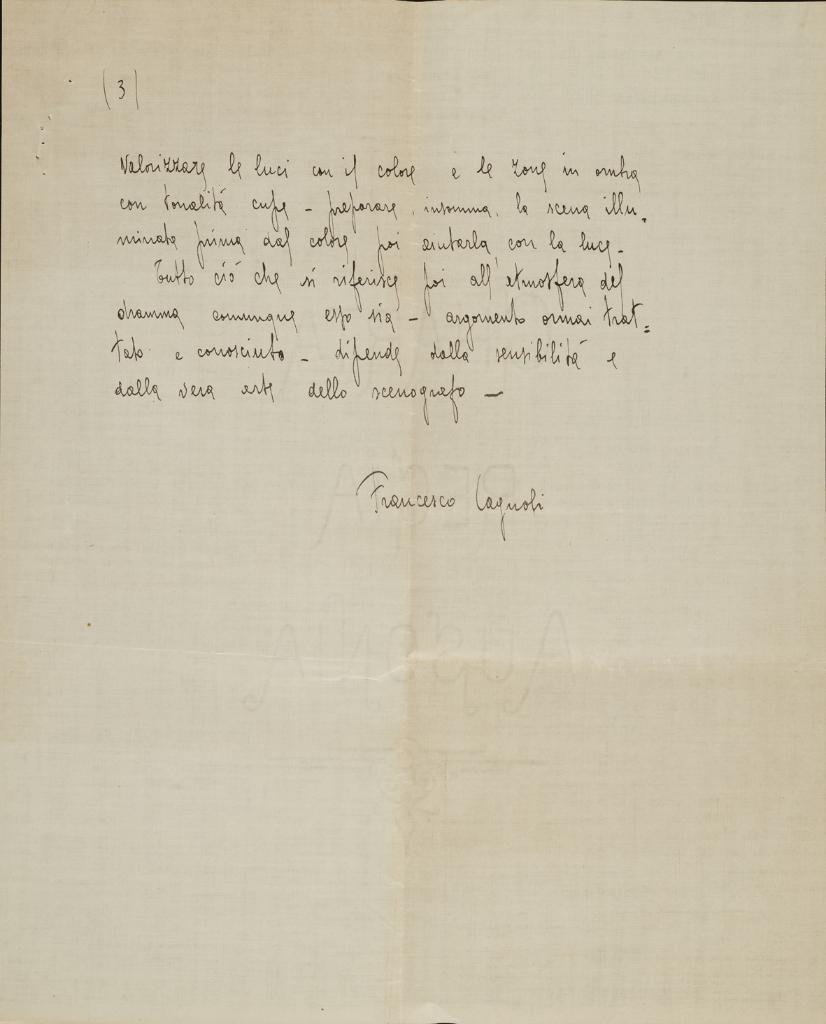 (3)
Valorizzare le luci con il colore e le zone in ombra
con tonalitá cupe - preparare, insomma, la scena illu-
minata prima dal colore poi aiutarla con la luce -
Tutto ció che si riferisce poi all'atmosfera del
dramma comunque esso sia - argomento ormai trat=
tato e conosciuto - dipende dalla sensibilitá e
dalla vera arte dello scenografo -
Francesco Cagnoli